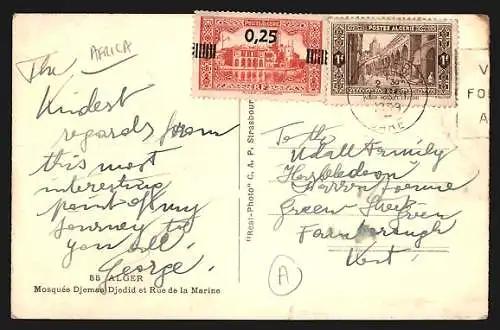 AFRICA
The
Kindest
regards from
this most
interesting
point of my
journey to
you all.
George.
55 ALGER
Mosquée Djemaa Djedid et Rue de la Marine
"Real-Photo" C. A. P. Strasbourg
0,25
POSTES ALGERIE
RF
1F
1F
V
FO
A
To the
Udall Family
"Hazeldean"
Warren Avenue
Green Street Green
Farnborough
Kent.
A